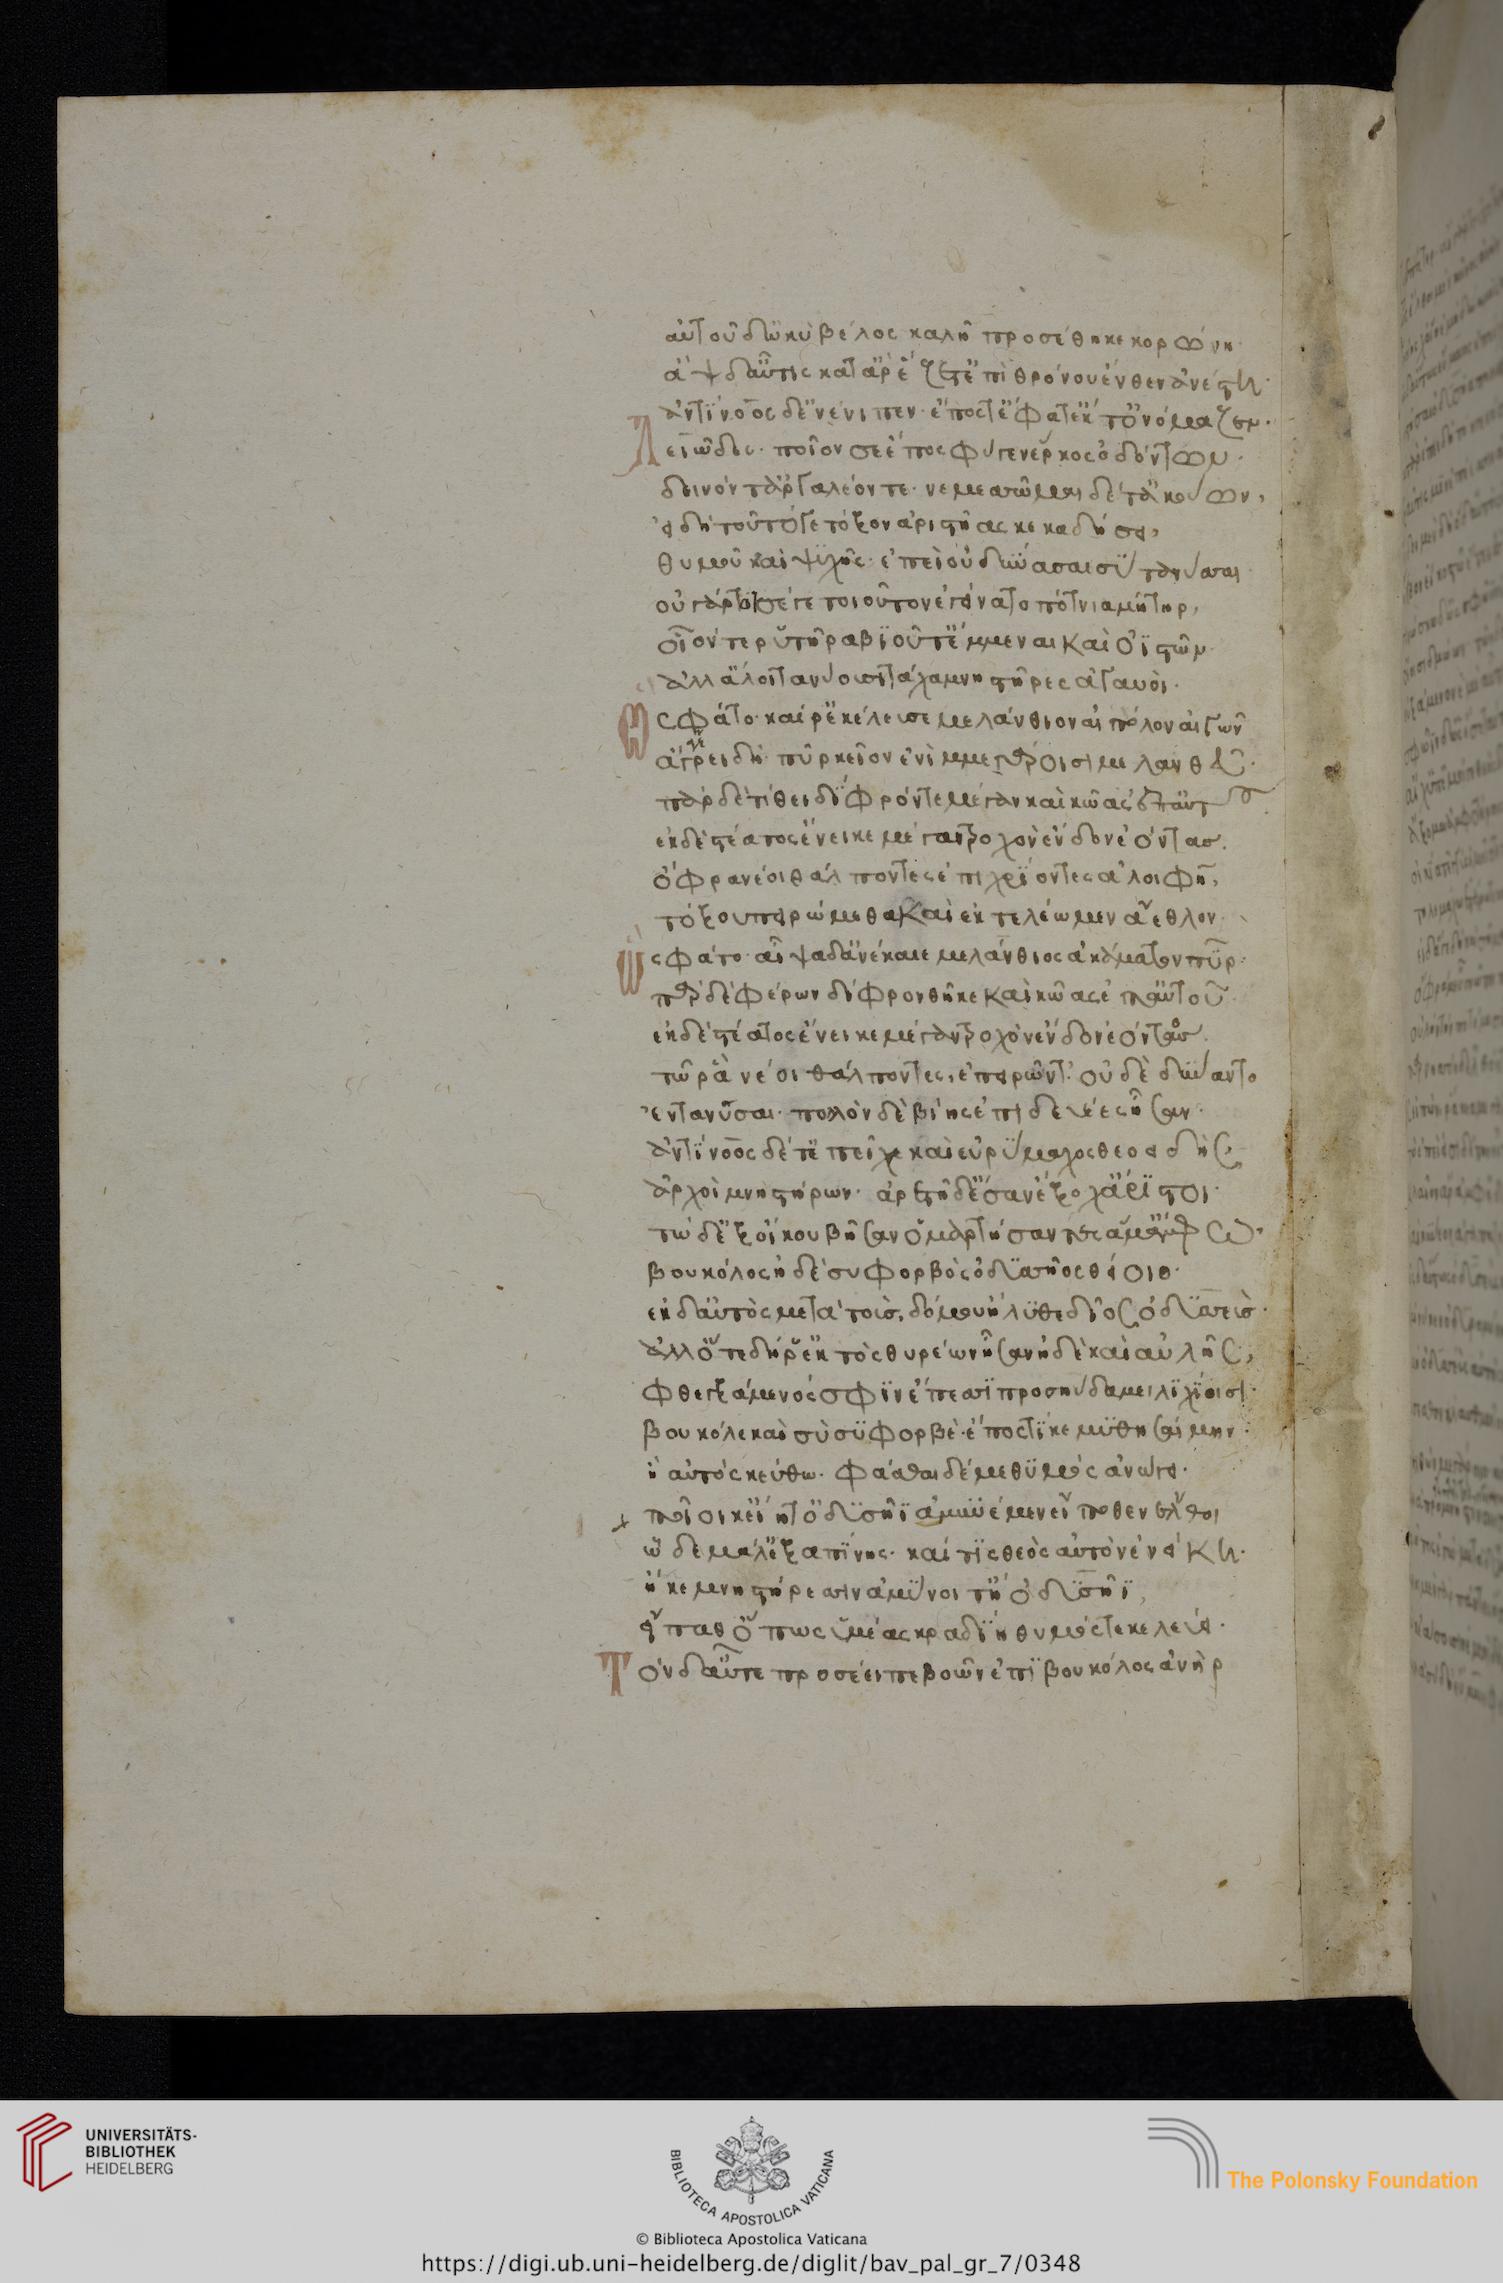 αὐτοῦ δ' ὠκὺ βέλος καλῆ προσέθηκε κορώνη·
ἂψ δαὖτις κατ' ἄρ' ἕζετ' ἐπὶ θρόνου ἔνθεν ἀνέστη·
ἀντίνοος δ' ἐνένιπεν· ἔπος τ' ἔφατ' ἔκ τ' ὀνόμαζεν·
Λειῶδες· ποῖον σε ἔπος φύγεν ἕρκος ὀδόντων·
δεινόν τ' ἀργαλέον τε· νεμεσσῶμαι δέ τ' ἀκούων,
εἰ δὴ τοῦτό γε τόξον ἀριστῆας κεκαδήσει,
θυμοῦ καὶ ψυχῆς· ἐπεὶ οὐ δύνασαι σὺ τανύσσαι·
οὐ γάρ τοι σέ γε τοιοῦτον ἐγείνατο πότνια μήτηρ,
οἷόν τε ῥυτῆρα βιοῦ τ' ἔμμεναι καὶ ὀϊστῶν·
ἀλλ' ἄλοι τανύουσι τάχα μνηστῆρες ἀγαυοὶ·
Ως φάτο· καί ῥ' ἐκέλευσε μελάνθιον αἰπόλον αἰγῶν
ἄγρει δὴ πῦρ κεῖον ἐνὶ μμεγάροισι μελανθεῦ·
πὰρ δὲ τίθει δίφρόν τε μέγαν καὶ κῶας ἐπ' αὐτοῦ
ἐκ δὲ στέατος ἔνεικε μέγαν τροχὸν ἔνδον ἐόντας.
ὄφρα νέοι θάλποντες ἐπιχρίοντες ἀλοιφῆ,
τόξου πειρώμεθα καὶ ἐκτελέωμεν ἄεθλον·
Ὣς φάτο· αἶψα δ' ἀνέκαιε μελάνθιος ἀκάματον πῦρ·
πὰρ δὲ φέρων δίφρον θῆκε καὶ κῶας ἐπ' αὐτοῦ·
ἐκ δὲ στέατος ἔνεικε μέγαν τροχὸν ἔνδον ἐόντας.
τῶ ῥα νέοι θάλποντες, ἐπειρῶντ'· οὐδὲ δύναντο
ἐντανῦσαι· πολλὸν δὲ βίης ἐπιδευέες ἦσαν·
ἀντίνοος δ' ἔτ' ἐπεῖχε καὶ εὐρύμαχος θεοειδὴς,
ἀρχοὶ μνηστήρων· ἀρετῆ δ' ἔσαν ἔξοχ' ἄριστοι·
τὼ δ' ἐξ οἴκου βῆσαν ὁμαρτήσαντες ἅμ' ἄμφω,
βουκόλος ἠδὲ συφορβὸς ὀδυσσῆος θείοιο·
ἐκ δ' αὐτὸς μετὰ τοὺς, δόμου ἤλυθε δῖος ὀδυσσεὺς·
ἀλλ' ὅτε δή ῥ' ἐκτὸς θυρέων ἦσαν ἠδὲ καὶ αὐλῆς,
φθεγξάμενός σφιν ἐπέεσσι προσηύδα μειλιχίοισι·
βουκόλε καὶ σὺ συφορβὲ· ἔπος τί κε μυθησαίμην·
ἢ αὐτὸς κεύθω· φάσθαι δέ με θυμὸς ἀνώγει·
ποῖοί κ' εἶητ' ὀδυσῆϊ ἀμυνέμεν εἴ ποθεν ἔλθοι
ὧδε μάλ' ἐξαπίνης· καί τις θεὸς αὐτὸν ἐνείκη·
ἤ κε μνηστήρεσσιν ἀμύνοιτ' ἢ ὀδυσῆϊ,
εἴπαθ' ὅπως ὑμέας κραδίη θυμός τε κελεύει·
Τὸν δ' αὖτε προσέειπε βοῶν ἐπὶ βουκόλος ἀνὴρ
UNIVERSITÄTS-
BIBLIOTHEK
HEIDELBERG
BIBLIOTECA APOSTOLICA VATICANA
The Polonsky Foundation
© Biblioteca Apostolica Vaticana
https://digi.ub.uni-heidelberg.de/diglit/bav_pal_gr_7/0348